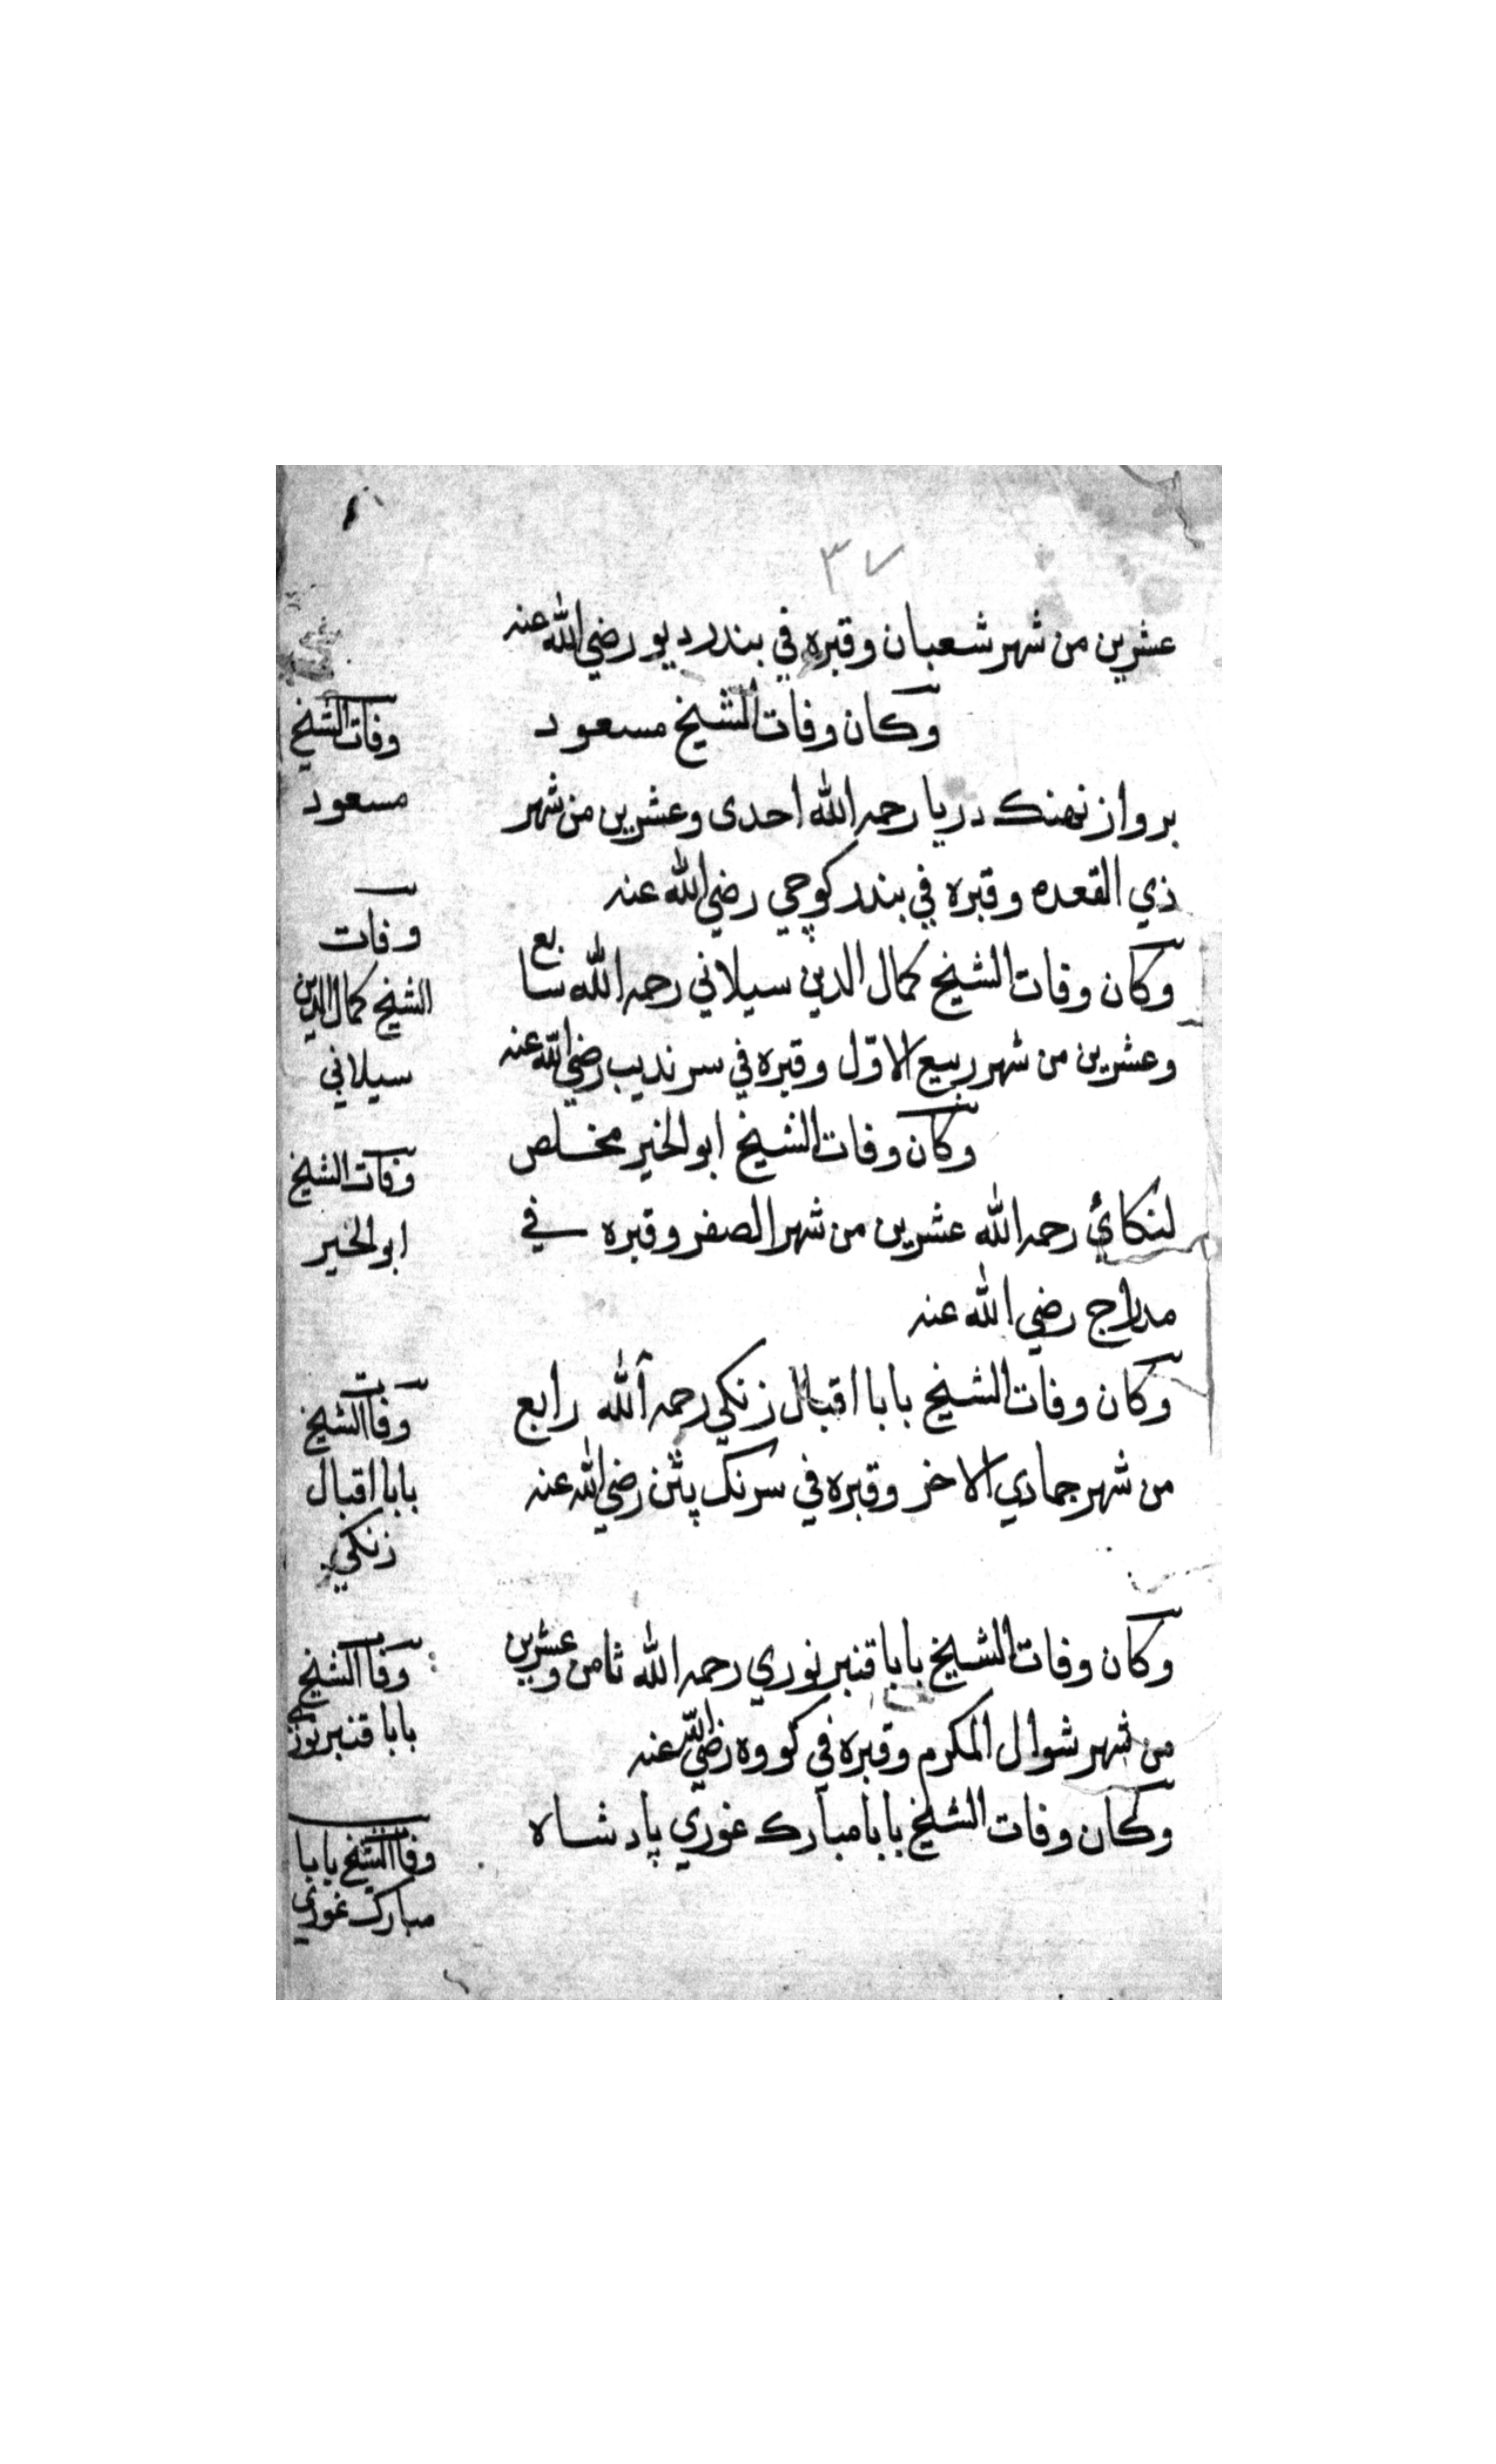 ٣٧
عشرين من شهر شعبان وقبره في بندر ديو رضي الله عنه
وكان وفات الشيخ مسعود
برواز نهنك دريا رحمه الله احدى وعشرين من شهر
ذي القعده وقبره في بندر كوچي رضي الله عنه
وكان وفات الشيخ كمال الدين سيلاني رحمه الله سابع
وعشرين من شهر ربيع الاوّل وقبره في سرنديب رضي الله عنه
وكان وفات الشيخ ابو الخير مخلص
لنكائ رحمه الله عشرين من شهر الصفر وقبره في
مدراج رضي الله عنه
وكان وفات الشيخ بابا اقبال زنكي رحمه الله رابع
من شهر جمادي الاخر وقبره في سرنك پتن رضي الله عنه
وكان وفات الشيخ بابا قنبر نوري رحمه الله ثامن وعشرين
من شهر شوال المكرم وقبره في كووه رضي الله عنه
وكان وفات الشيخ بابا مبارك غوري پادشاه
وفات الشيخ
مسعود
وفات
الشيخ كمال الدين
سيلاني
وفات الشيخ
ابو الخير
وفات الشيخ
بابا اقبال
زنكي
وفات الشيخ
بابا قنبر نوري
وفات الشيخ بابا
مبارك غوري